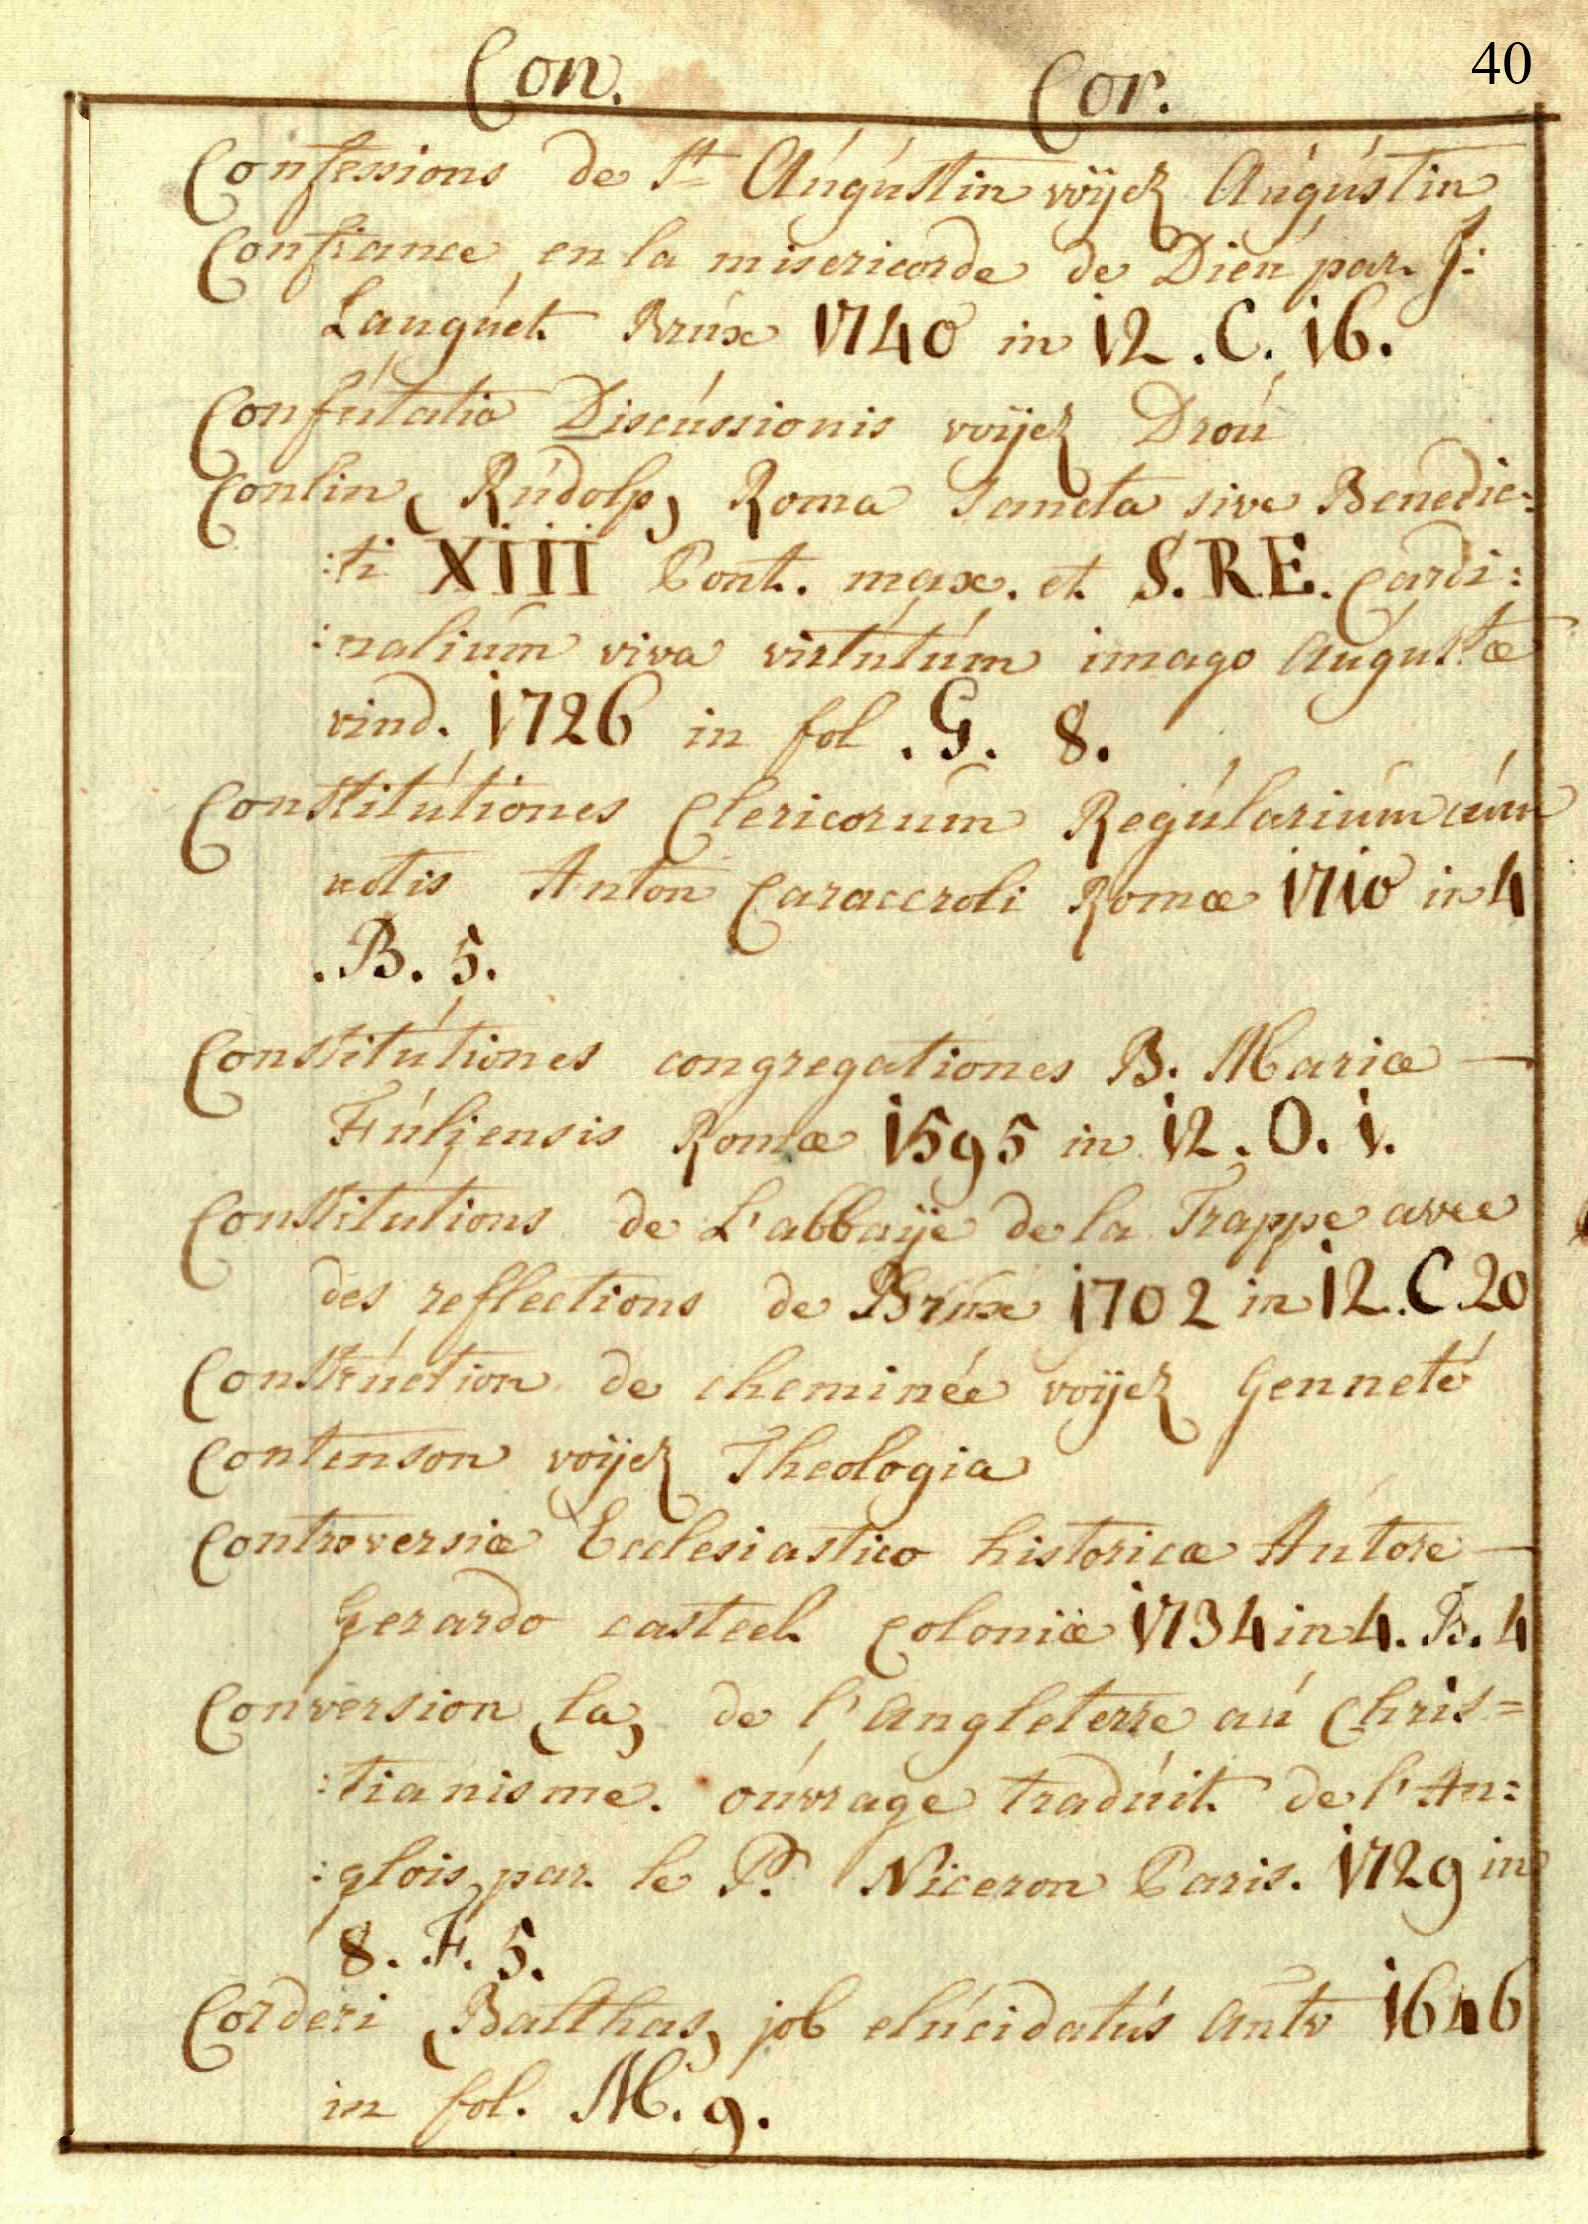 40
Con. Cor.
Confessions de St Augustin voÿez Augustin
Confiance en la misericorde de Dieu par J:
Languet Brux 1740 in 12. C. 16.
Confutatio Discussionis voÿez Drou
Conlin (Rudolp) Roma Sancta sive Benedic:
:ti XIII Pont. max. et S.R.E. Cardi:
:nalium viva virtutum imago Augustæ
vind. 1726 in fol. G. 8.
Constitutiones Clericorum Regularium cum
notis Anton Caraceroli Romæ 1710 in 4
.B. 5.
Constitutiones congregationes B. Mariæ —
Fuljensis Romæ 1595 in 12. O. 1.
Constitutions de L'abbaÿe de la Trappe avec
des reflections de Brux 1702 in 12. C. 20
Construction de cheminée voÿez Genneté
Contenson voÿez Theologia
Controversiæ Ecclesiastico historicæ Autore —
Gerardo casteel Coloniæ 1734 in 4. B. 4
Conversion (la) de l'Angleterre au Chris=
:tianisme. ouvrage traduit de l'An:
:glois par le P. Niceron Paris. 1729 in
8. F. 5.
Corderi (Balthas) job elucidatus Antv 1646
in fol. M. 9.